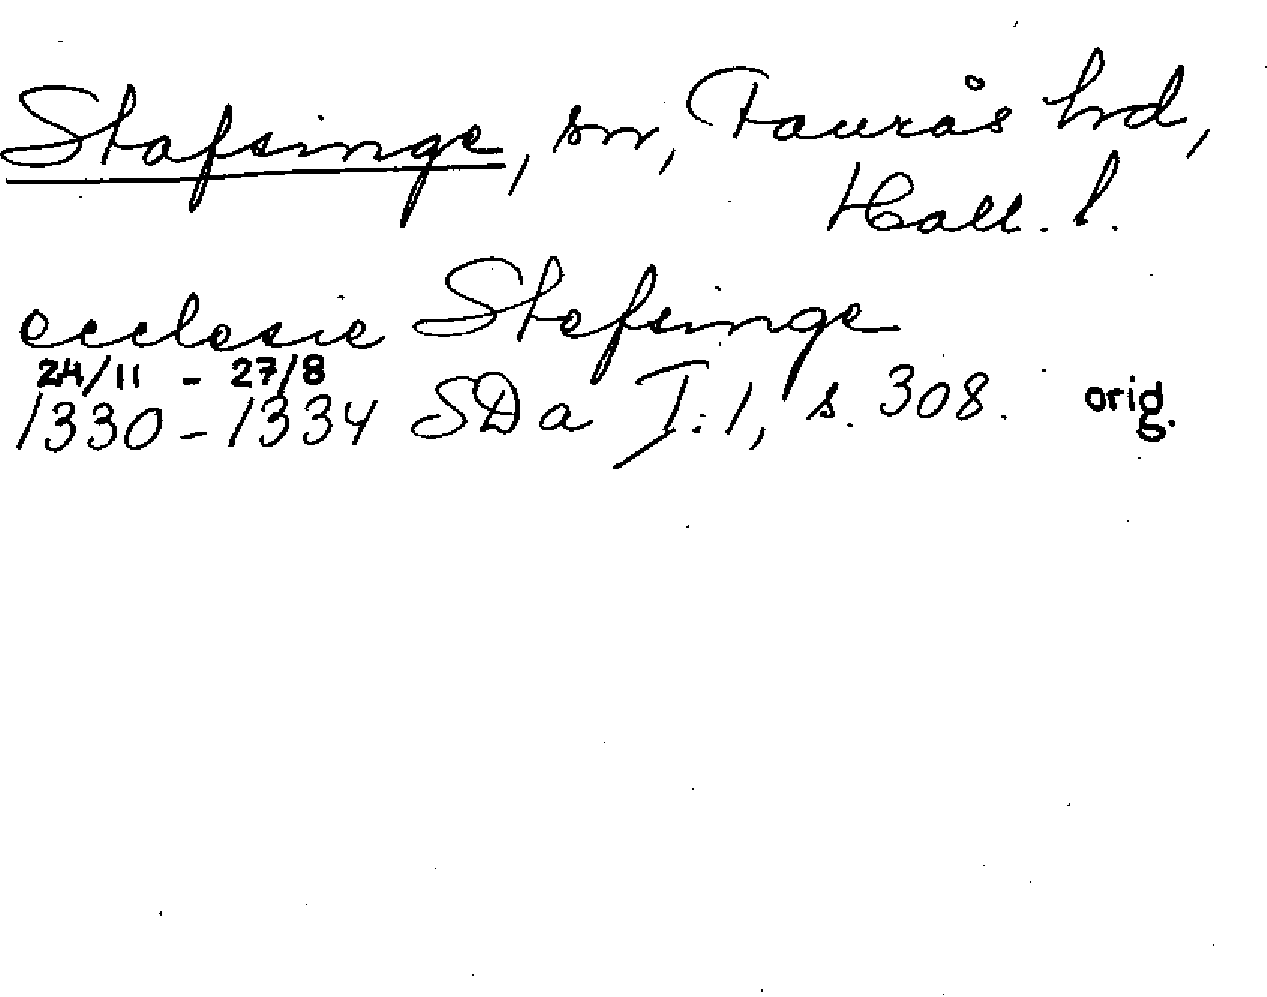 Stafsinge, sn, Faurås hd,
Hall. l.
ecclesie Stefsinge
24/11 - 27/8
1330-1334 SDa I:1, s. 308. orig.